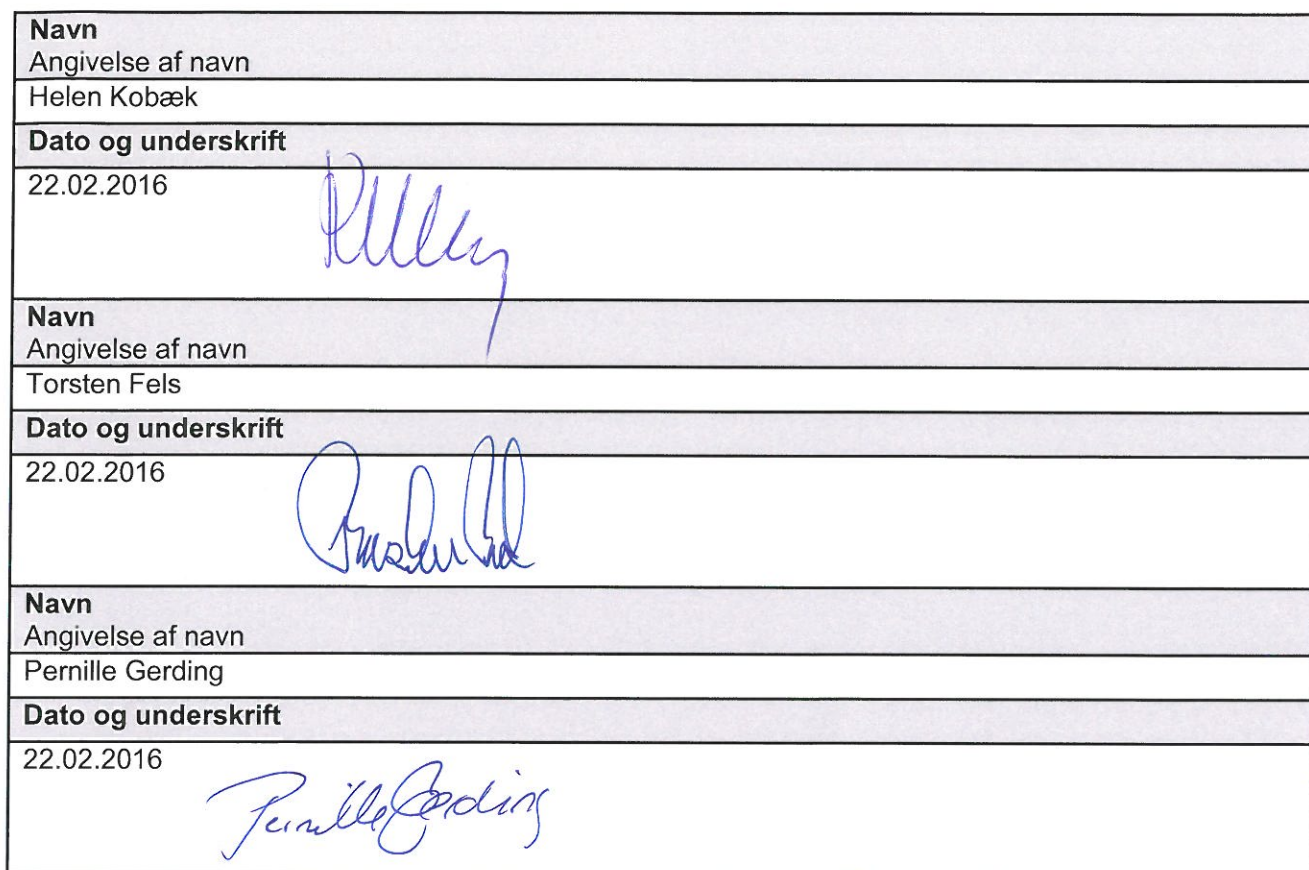 Navn
Angivelse af navn
Helen Kobæk
Dato og underskrift
22.02.2016
Navn
Angivelse af navn
Torsten Fels
Dato og underskrift
22.02.2016
Navn
Angivelse af navn
Pernille Gerding
Dato og underskrift
22.02.2016
Pernille Gerding